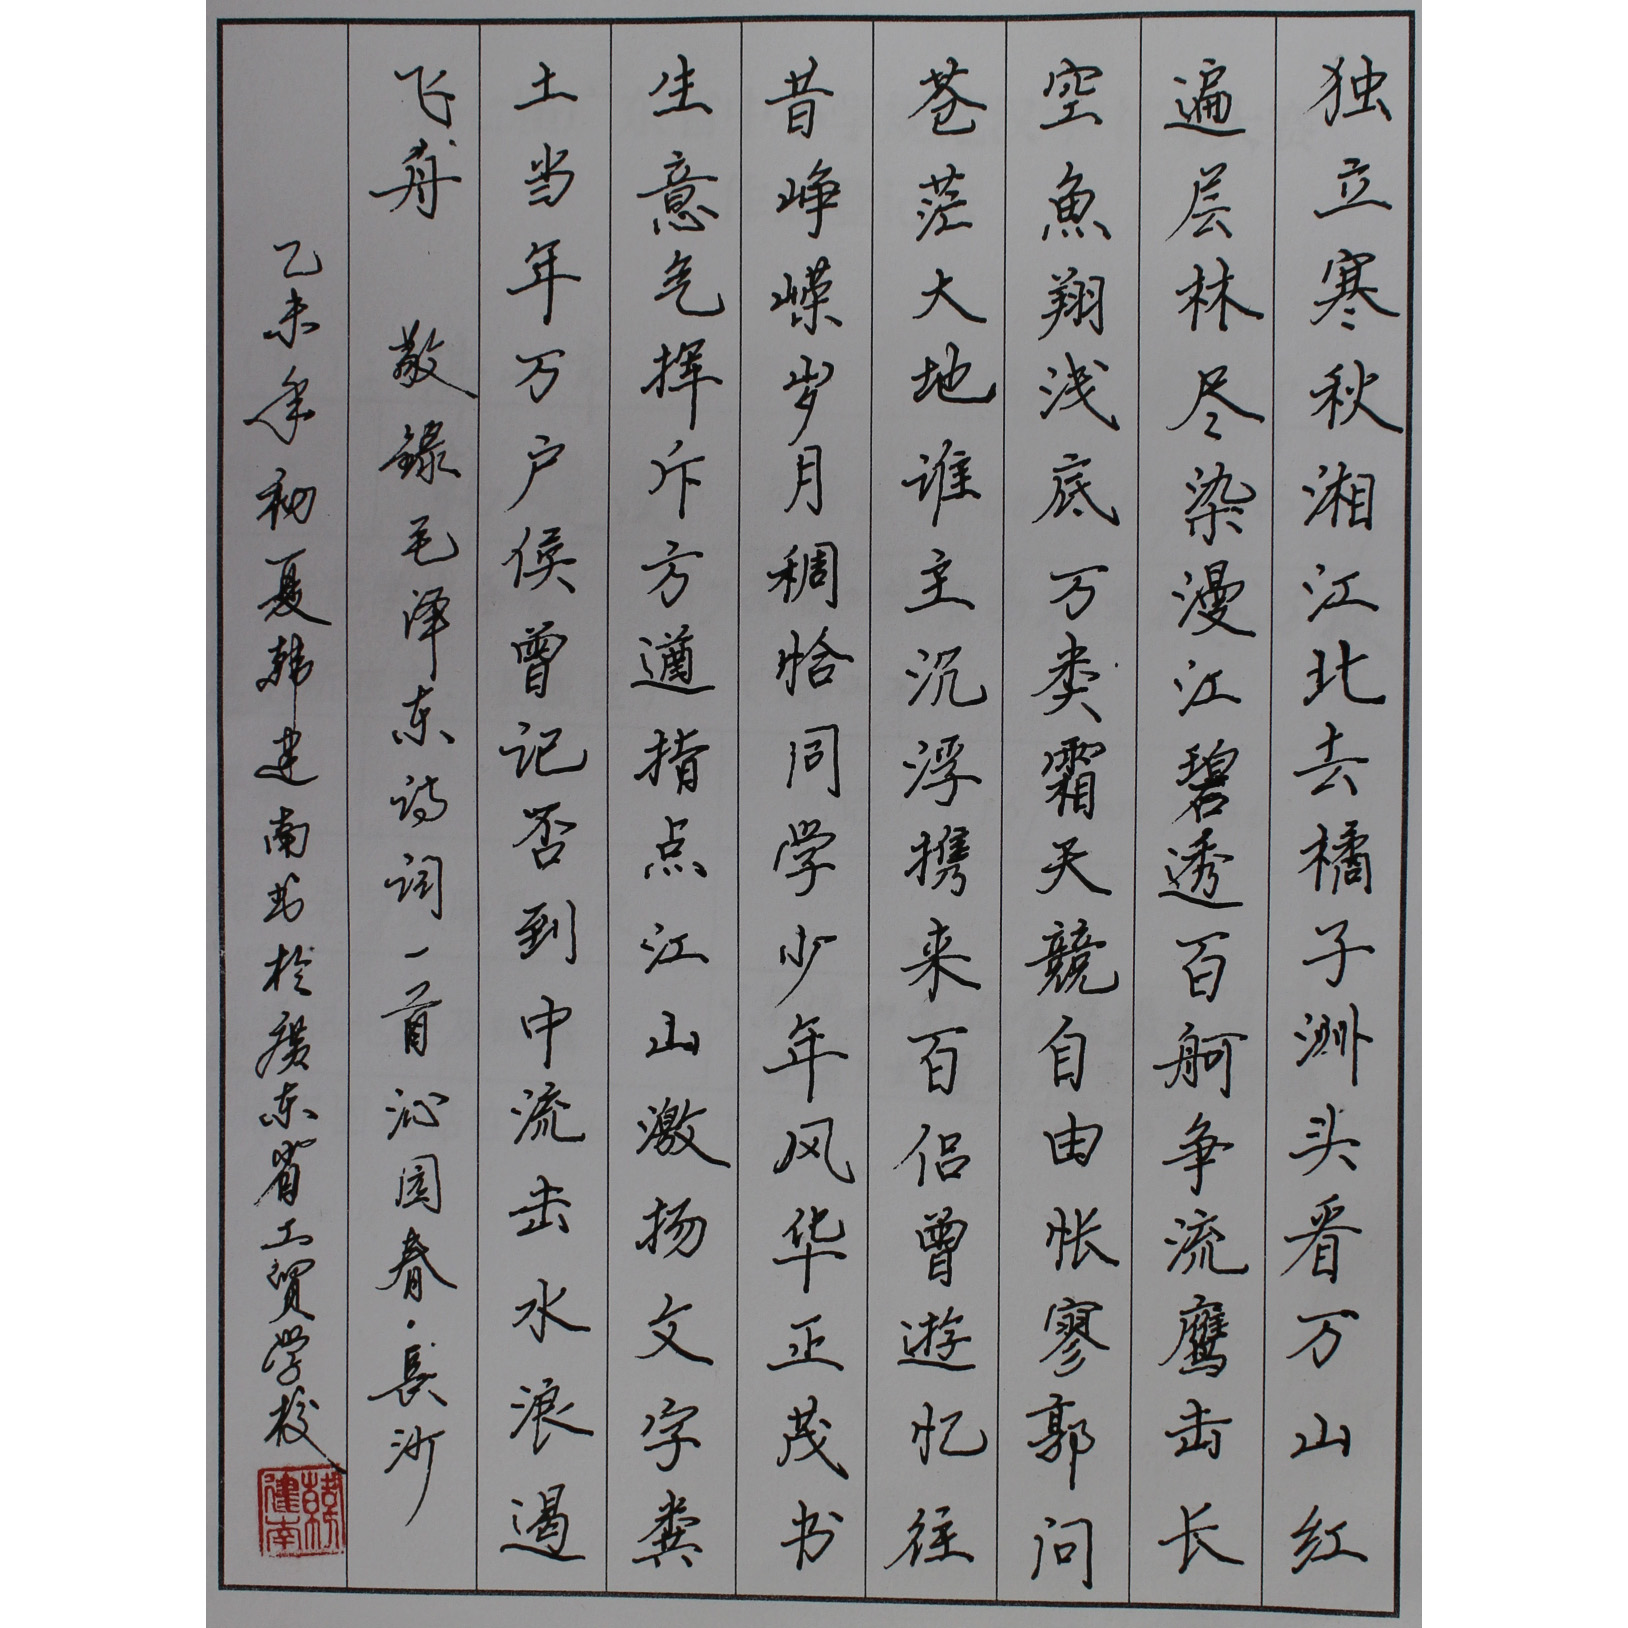 独立寒秋湘江北去橘子洲头看万山红
遍层林尽染漫江碧透百舸争流鹰击长
空魚翔浅底万类霜天競自由怅寥郭问
苍茫大地谁主沉浮携来百侣曾遊忆往
昔峥嵘岁月稠恰同学少年风华正茂书
生意气挥斥方遒指点江山激扬文字粪
土当年万户侯曾记否到中流击水浪遏
飞舟 敬錄毛泽东诗词一首沁园春·長沙
乙未年初夏韩建南书於广东省工贸学校
韓建南